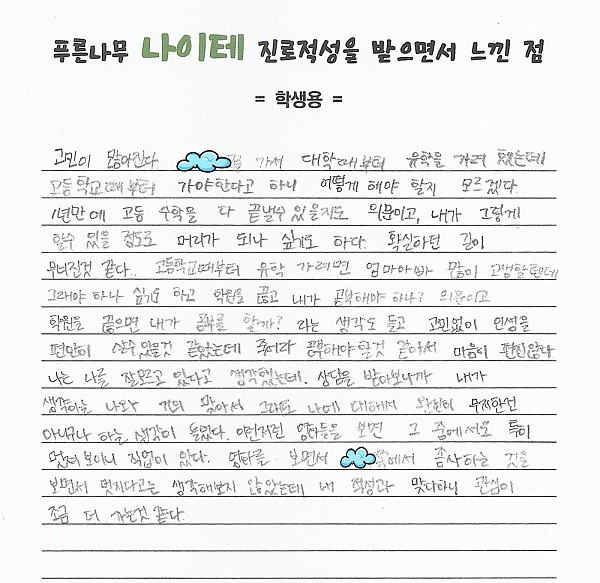 푸른나무 나이테 진로적성을 받으면서 느낀 점
= 학생용 =
고민이 많아진다 가서 대학때부터 유학을 가려 했는데
고등학교때부터 가야한다고 하니 어떻게 해야 할지 모르겠다
1년만에 고등 수학을 다 끝낼수 있을지도 의문이고, 내가 그렇게
할수 있을 정도로 머리가 되나 싶기도 하다. 확실하던 길이
무너진것 같다.. 고등학교때부터 유학 가려면 엄마아빠 많이 고생할텐데
그래야 하나 싶기도 하고 학원을 끊고 내가 공부해야하나? 의문이고
학원을 끊으면 내가 공부를 할까? 라는 생각도 들고 고민없이 인생을
편안히 살수있을것 같았는데 죽어라 공부해야할것 같아서 마음이 편치않다
나는 나를 잘모르고 있다고 생각했는데. 상담을 받아보니까 내가
생각하는 나와 거의 맞아서 그래도 나에 대해서 완전히 무지한건
아니구나 하는 생각이 들었다. 이런저런 영타들을 보면 그 중에서도 특히
멋져보이는 직업이 있다. 영타를 보면서 에서 종사하는 것을
보면서 멋지다고는 생각해보지 않았는데 내 적성과 맞다하니 관심이
조금 더 가는것 같다.